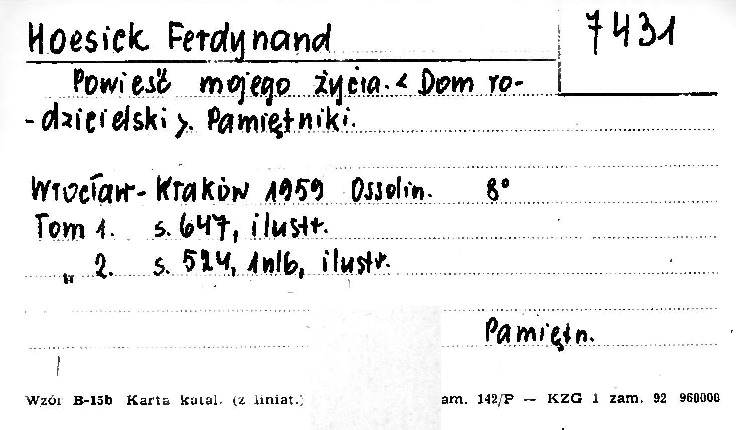 Hoesick Ferdynand
7431
Powieść mojego życia. < Dom ro-
-dzicielski >. Pamiętniki.
Wrocław - Kraków 1959 Ossolin. 8°
Tom 1. s. 647, ilustr.
„ 2. s. 524, 1nlb, ilustr.
Pamiętn.
Wzór B-15b Karta katal. (z liniat.) am. 142/P — KZG 1 zam. 92 960000